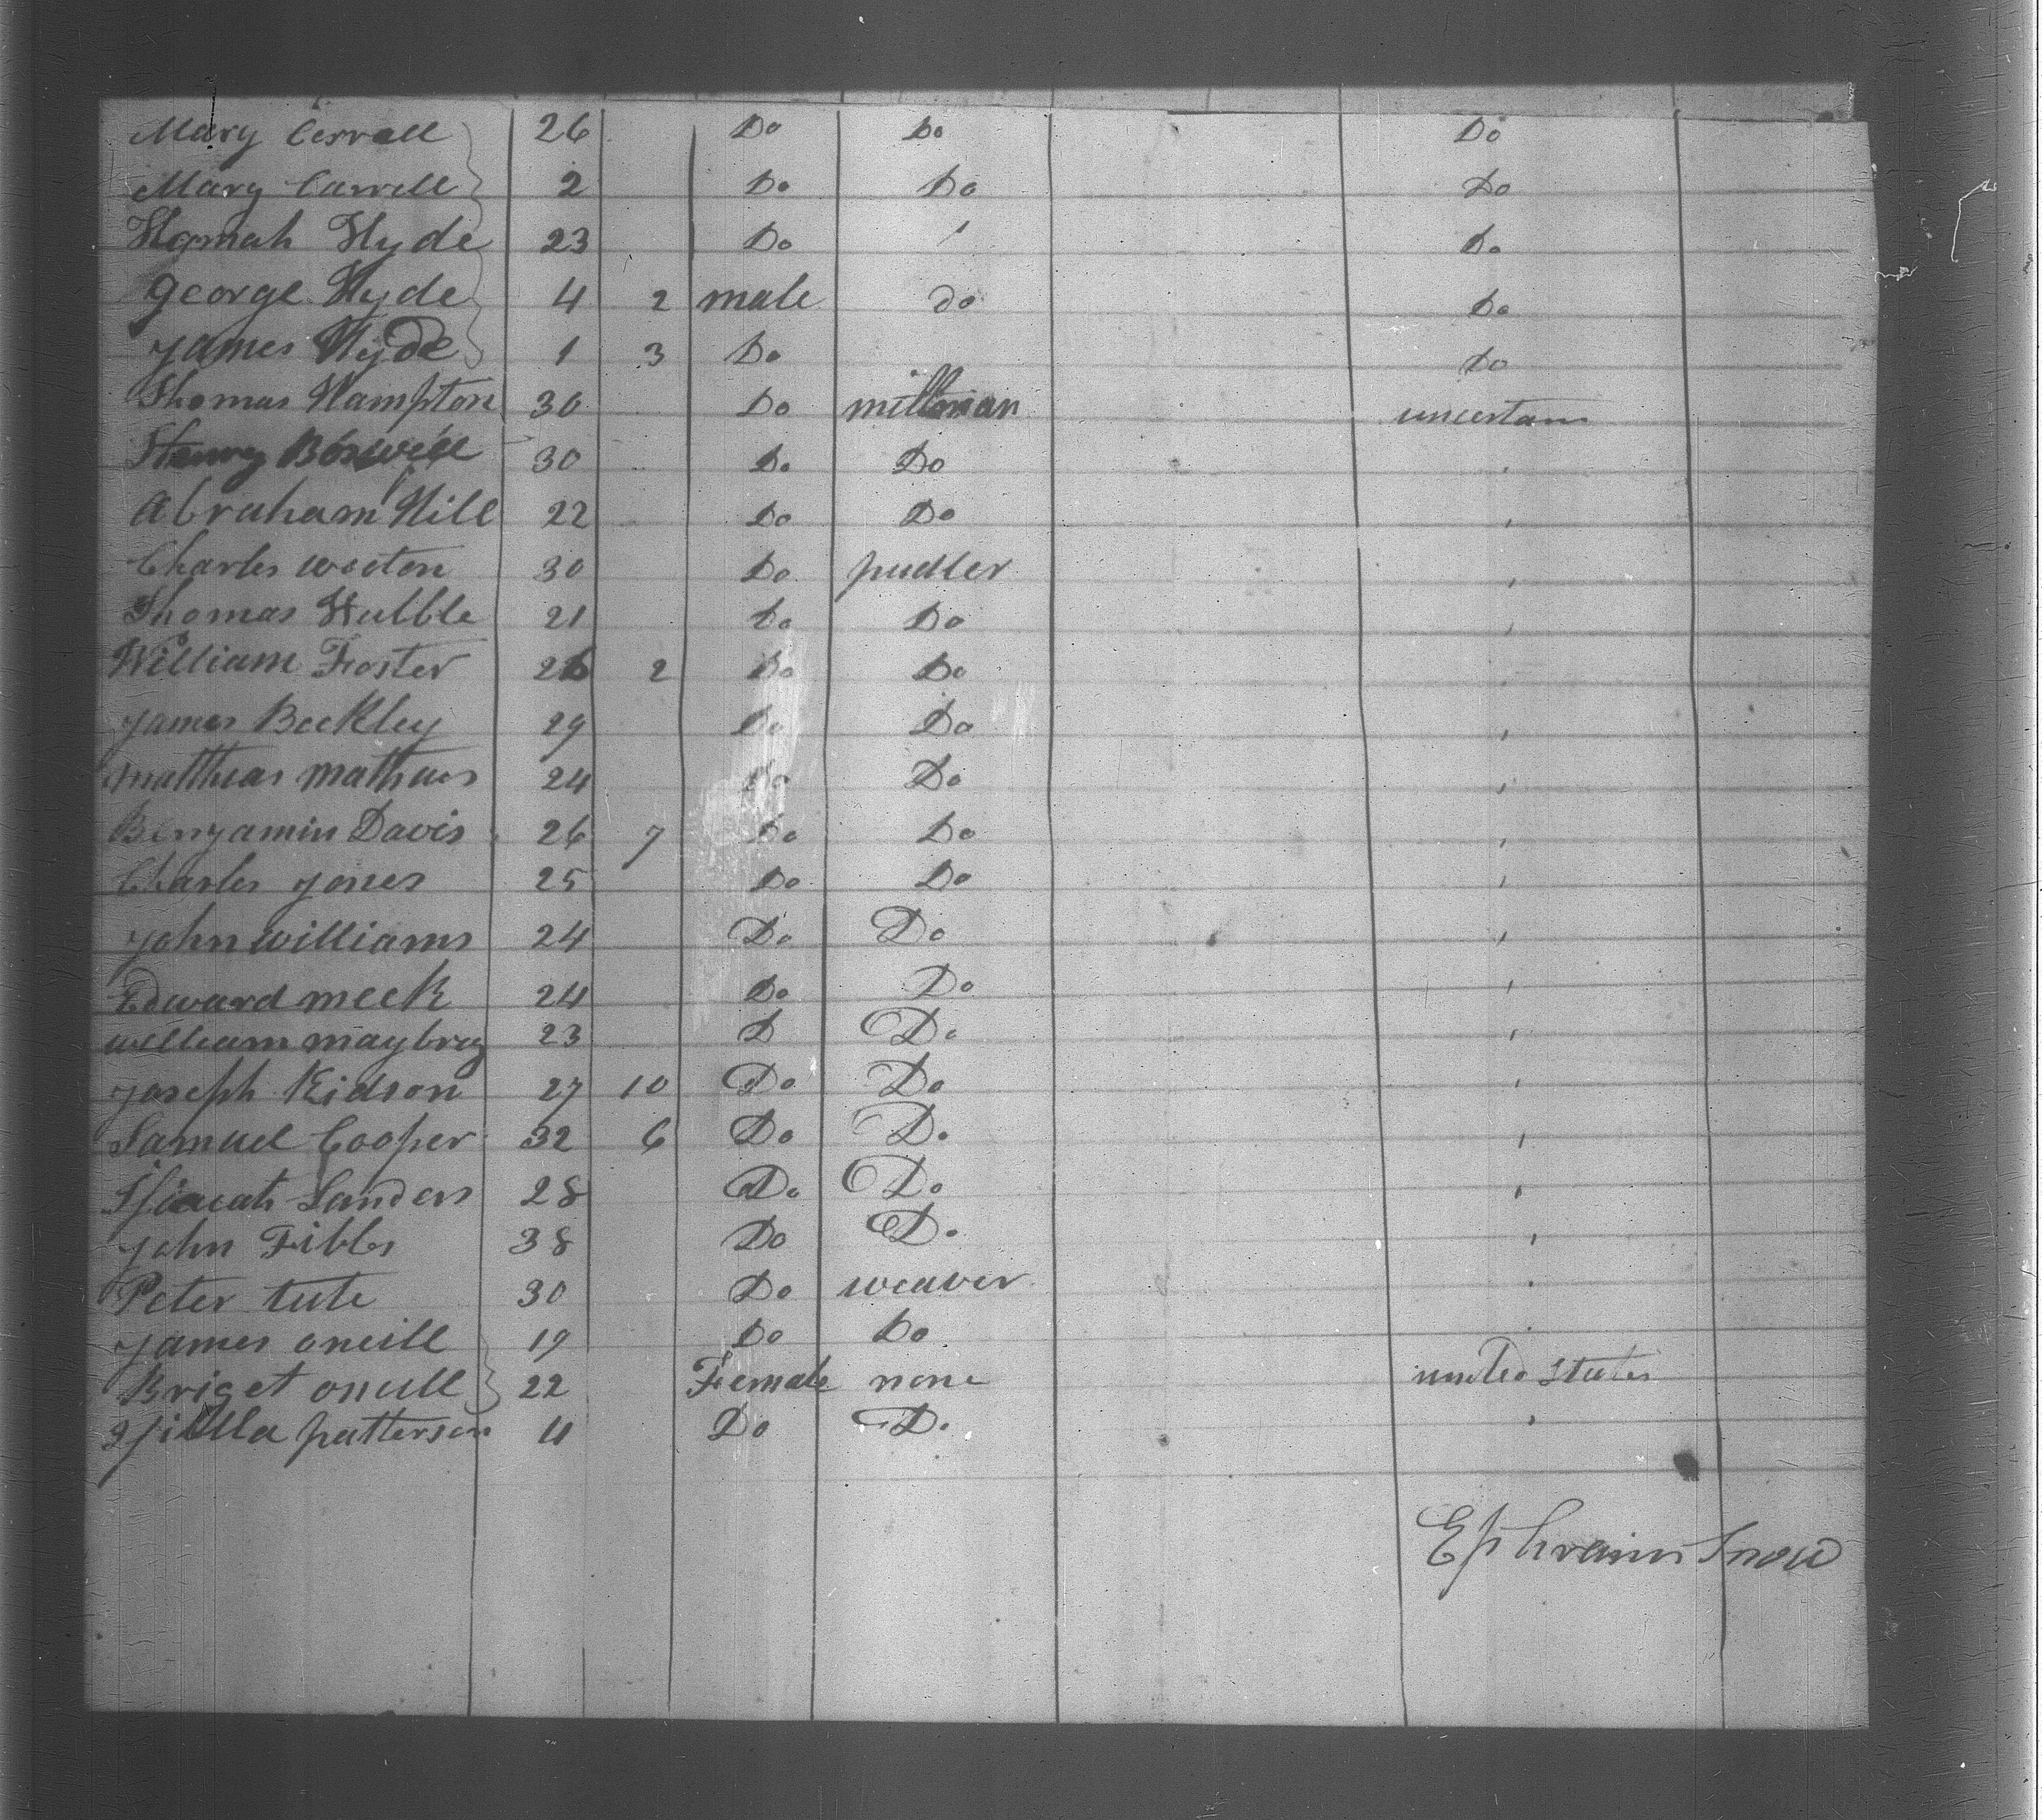 Mary Cerrall 26 Do Do Do
Mary Carrell 2 Do Do Do
Hannah Hyde 23 Do ' Do
George Hyde 4 2 male do Do
James Hyde 1 3 Do Do
Thomas Hampton 30 Do millman uncertain
Henry Boswell 30 Do Do '
Abraham Hill 22 Do Do '
Charles weston 30 Do pudler '
Thomas Hubble 21 Do Do '
William Foster 26 2 Do Do '
James Beckley 29 Do Do '
matthias mathews 24 Do Do '
Benjamin Davis 26 7 Do Do '
Charles Jones 25 Do Do '
John williams 24 Do Do '
Edward meek 24 Do Do '
william maybry 23 D Do '
Joseph Kidson 27 10 Do Do '
Samuel Cooper 32 6 Do Do '
Sanders 28 Do Do '
John Fibbs 38 Do Do '
Peter tute 30 Do weaver '
James oneill 19 Do Do '
Briget oneill 22 Female none united States
patterson 4 Do Do '
Ephraim Snow